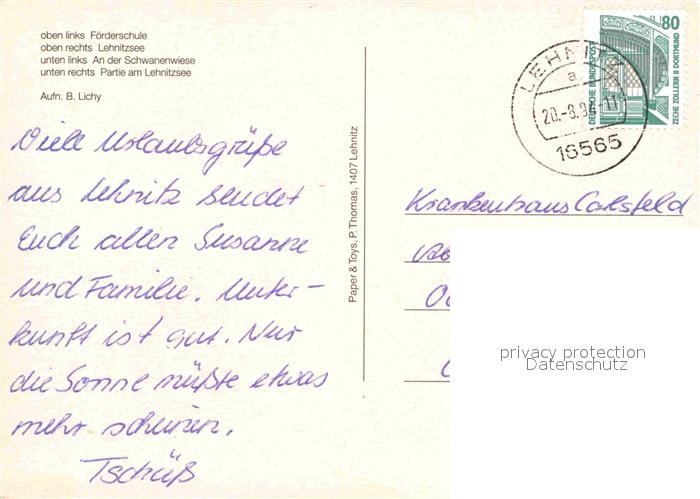 oben links  Förderschule
oben rechts  Lehnitzsee
unten links  An der Schwanenwiese
unten rechts  Partie am Lehnitzsee
Aufn. B. Lichy
Viele Urlaubsgrüße
aus Lehnitz sendet
Euch allen Susanne
und Familie. Unter-
kunft ist gut. Nur
die Sonne müßte etwas
mehr scheinen.
Tschüß
Paper & Toys, P. Thomas, 1407 Lehnitz
80
DEUTSCHE BUNDESPOST
ZECHE ZOLLERN II DORTMUND
LEHNITZ
a
16565
Krankenhaus Carlsfeld
privacy protection
Datenschutz